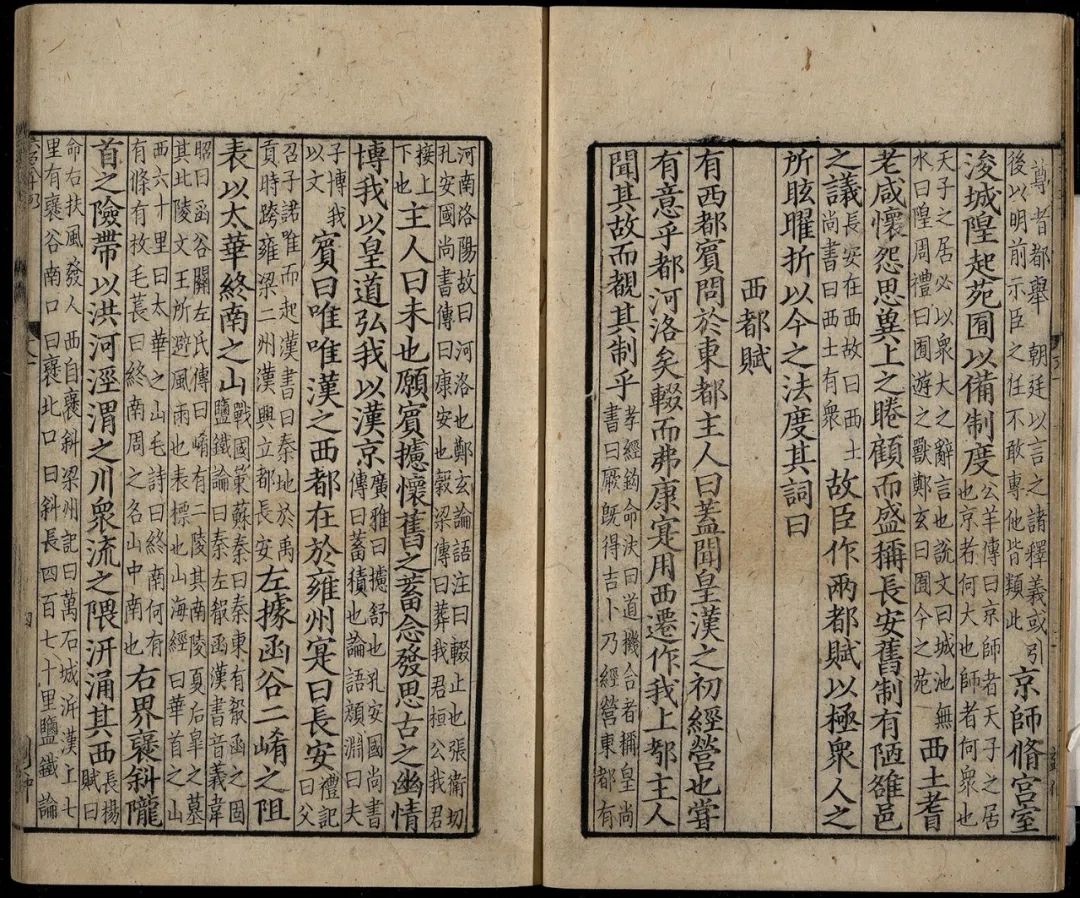 尊者都舉朝廷以言之諸釋義或引後以明前示臣之任不敢專他皆類此京師脩宫室
浚城隍起苑囿以備制度公羊傳曰京師者天子之居也京者何大也師者何衆也
天子之居必以衆大之辭言也說文曰城池無水曰隍周禮曰囿遊之獸鄭玄曰囿今之苑西土耆
老咸懷怨思兾上之睠顧而盛稱長安舊制有陋雒邑
之議長安在西故曰西土尚書曰西土有衆故臣作兩都賦以極衆人之
所眩曜折以今之法度其詞曰
西都賦
有西都賓問於東都主人曰蓋聞皇漢之初經營也甞
有意乎都河洛矣輟而弗康寔用西遷作我上都主人
聞其故而覩其制乎孝經鈎命决曰道機合者稱皇尚書曰厥旣得吉卜乃經營東都有
河南洛陽故曰河洛也鄭玄論語注曰輟止也張衛切孔安國尚書傳曰康安也穀梁傳曰葬我君桓公我君
接上下也主人曰未也願賓攄懷舊之蓄念發思古之幽情
博我以皇道弘我以漢京廣雅曰攄舒也孔安國尚書傳曰蓄積也論語顔淵曰夫
子博我以文賓曰唯唯漢之西都在於雍州寔曰長安禮記曰父
召子諾唯而起漢書曰秦地於禹貢時跨雍梁二州漢興立都長安左據函谷二崤之阻
表以太華終南之山戰國策蘇秦曰秦東有殽函之固鹽鐵論曰秦左殽函漢書音義韋
昭曰函谷關左氏傳曰崤有二陵其南陵夏后皐之墓其北陵文王所避風雨也表標也山海經曰華首之山
西六十里曰太華之山毛詩曰終南何有有條有枚毛萇曰終南周之名山中南也右界褒斜隴
首之險帶以洪河涇渭之川衆流之隈汧涌其西長揚賦曰
命右扶風發人西自褒斜梁州記曰萬石城泝漢上七里有褒谷南口曰褒北口曰斜長四百七十里鹽鐵論